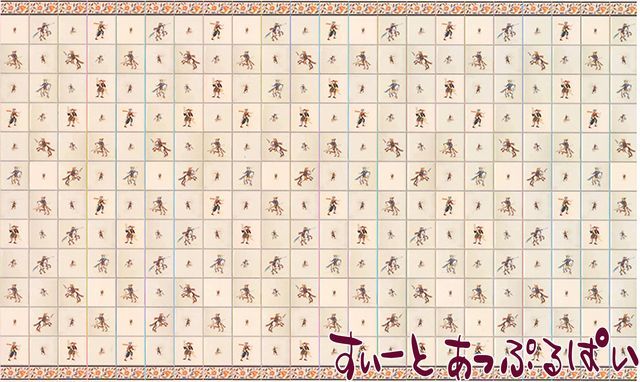 すぃーと あっぷるぱい